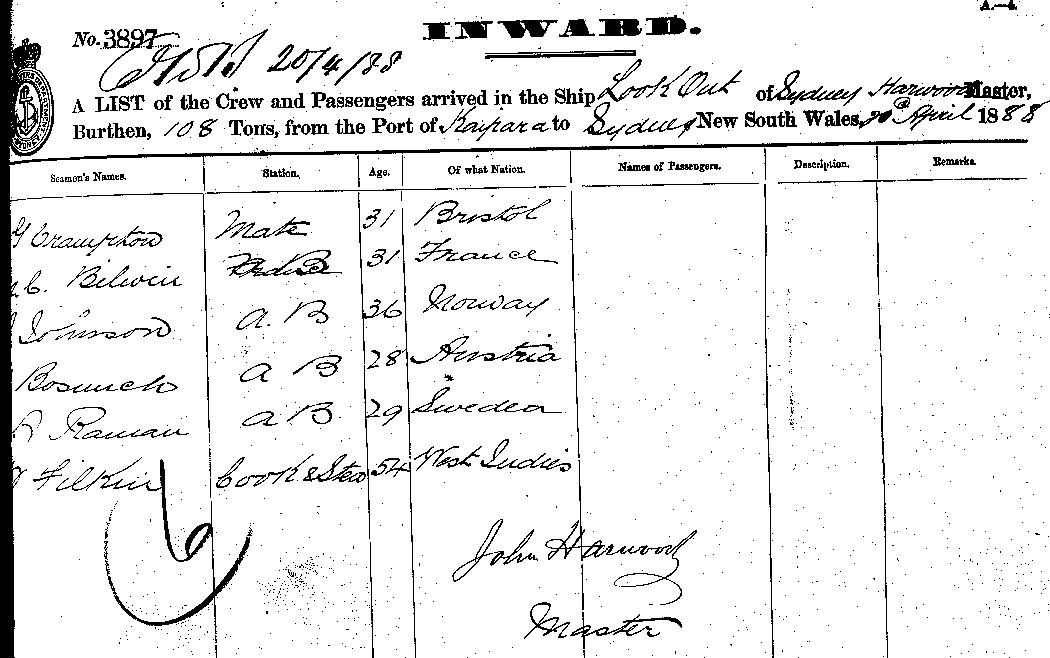 A.—4.
INWARD.
No. 3897
20/4/88
A LIST of the Crew and Passengers arrived in the Ship Look Out of Sydney Harwood Master,
Burthen, 108 Tons, from the Port of Kaipara to Sydney New South Wales, 20th April 1888
Seamen's Names. Station. Age. Of what Nation. Names of Passengers. Description. Remarks.
Crampton Mate 31 Bristol
C. Bilwin 31 France
Johnson A.B 36 Norway
Bosunch A B 28 Austria
Raman A B 29 Sweden
Filkin Cook & Stew 54 West Indies
6
John Harwood
Master